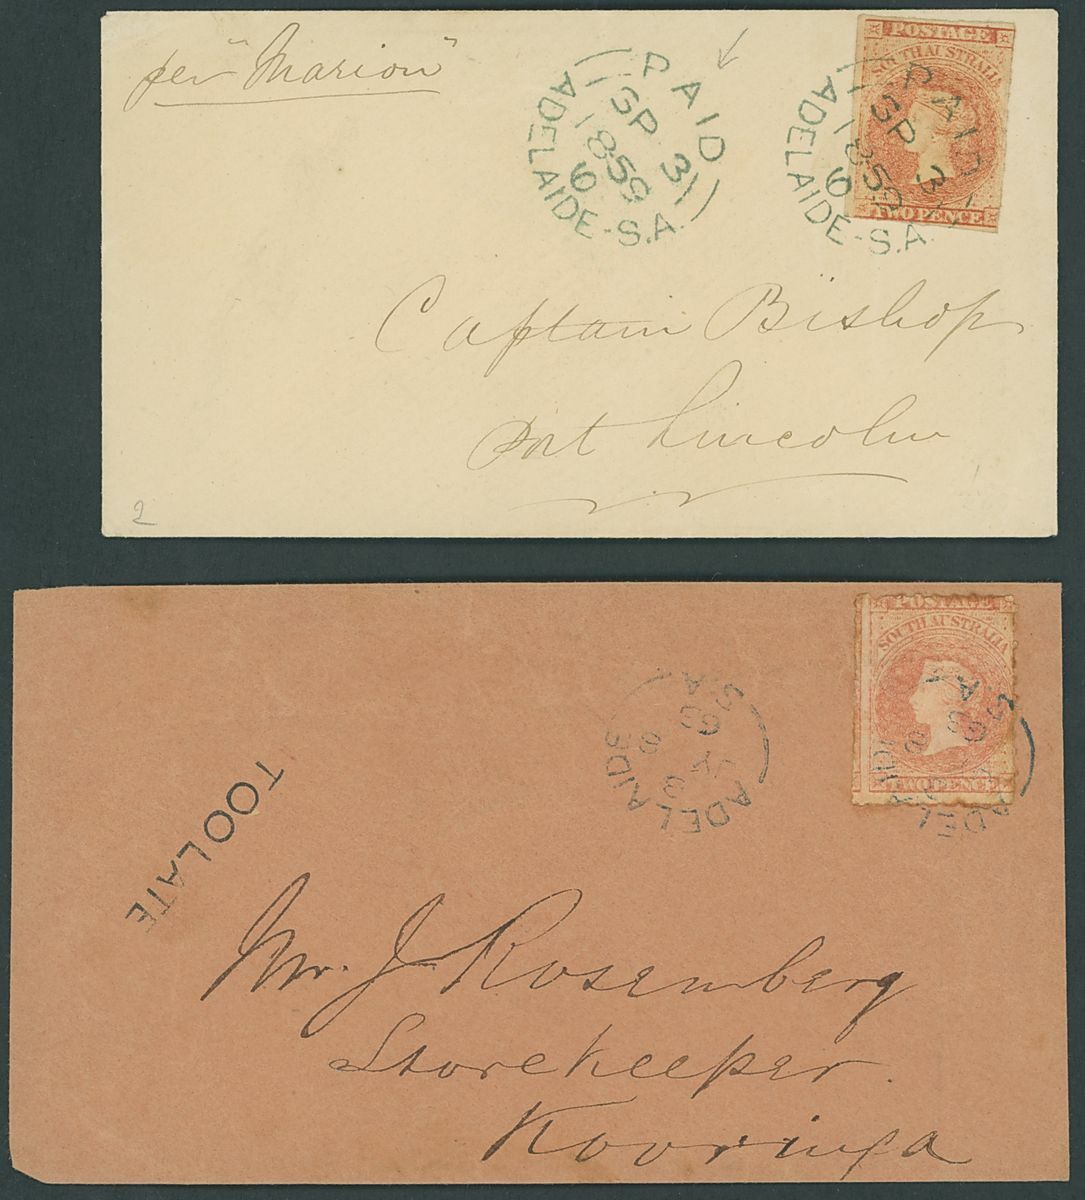 per "Marion"
PAID
SP 3
1859
6
ADELAIDE-S.A.
POSTAGE
SOUTH AUSTRALIA
TWO PENCE
PAID
SP 3
1859
6
ADELAIDE-S.A.
Captain Bishop
Port Lincoln
2
POSTAGE
SOUTH AUSTRALIA
TWO PENCE
ADELAIDE
S.A
ADELAIDE
S.A
TOO LATE
Mr. J Rosemberg
Storekeeper
Kooringa